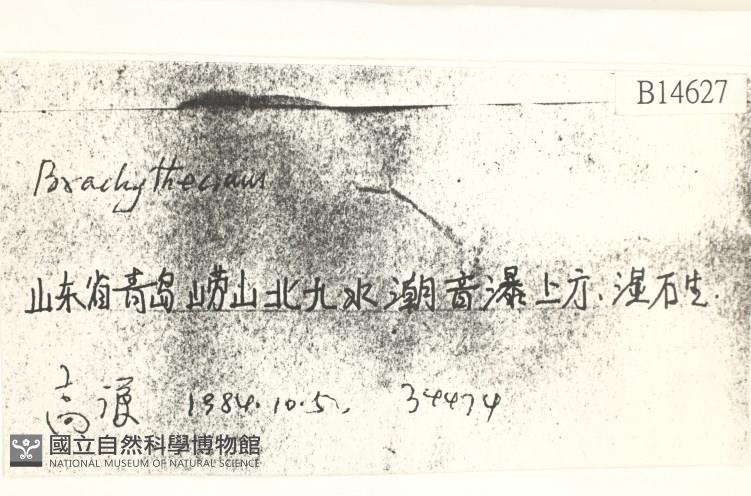 B14627
Brachythecium
山东省青岛崂山北九水潮音瀑上方、湿石生.
高谦 1984.10.5. 34474
國立自然科學博物館
NATIONAL MUSEUM OF NATURAL SCIENCE